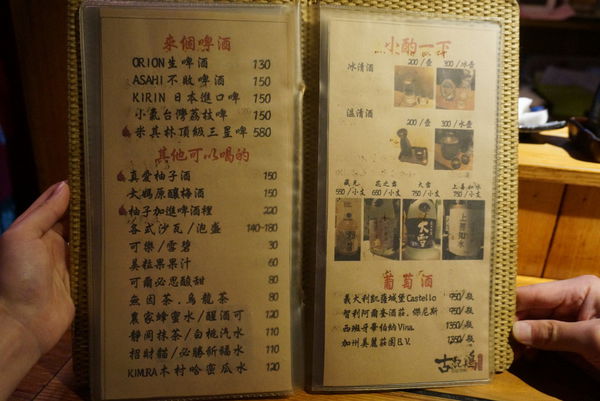 來個啤酒
ORION生啤酒 130
ASAHI不敗啤酒 150
KIRIN日本進口啤 150
小氣台灣荔枝啤 150
米其林頂級三星啤 580
其他可以喝的
真愛柚子酒 150
大媽原釀梅酒 150
柚子加進啤酒裡 220
各式沙瓦/泡盛 140-180
可樂/雪碧 30
美粒果果汁 60
可爾必思酸甜 80
無因茶.烏龍茶 80
農家蜂蜜水/醒酒可 120
靜岡抹茶/白桃汽水 110
招財貓/必勝祈福水 110
KIMURA木村哈密瓜水 120
小酌一下
冰清酒 200/壺 300/冰壺
溫清酒 200/壺 300/冰壺
花之舞 大雪 上善如水
550/小支 650/小支 750/小支 750/小支
上善如水
葡萄酒
義大利凱薩城堡Castello 950/瓶
智利阿爾奎酒莊.傑尼斯 950/瓶
西班牙華伯納Vina. 1350/瓶
加州美麗莊園B.V. 1350/瓶